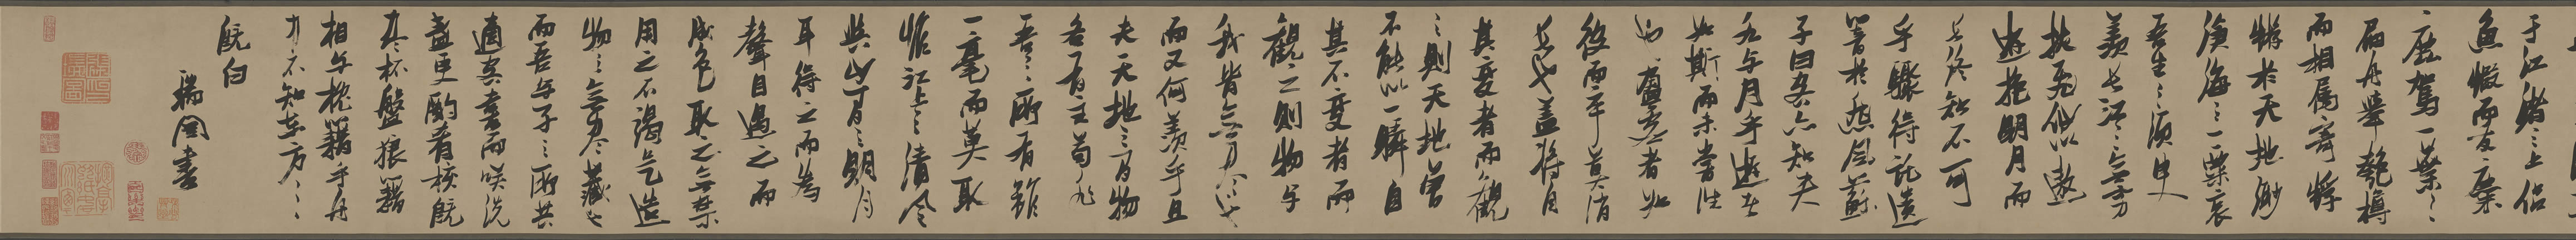 于江渚之上侶
魚蝦而友麋
鹿駕一葉之
扁舟舉匏樽
而相属寄蜉
蝣於天地渺
滄海之一粟哀
吾生之須臾
羨長江之無窮
挾飛仙以遨
遊抱明月而
長終知不可
乎驟得託遺
響於悲風蘇
子曰客亦知夫
水与月乎逝者
如斯而未嘗往
也盈虛者如
彼而卒莫消
長也蓋將自
其變者而觀
之則天地曾
不能以一瞬自
其不變者而
觀之則物与
我皆無盡也
而又何羨乎且
夫天地之間物
各有主苟非
吾之所有雖
一毫而莫取
惟江上之清風
與山間之明月
耳得之而為
聲目遇之而
成色取之無禁
用之不竭是造
物之無盡藏也
而吾与子之所共
適客喜而咲洗
盞更酌肴核既
盡杯盤狼藉
相与枕藉乎舟
中不知東方之
既白
瑞圖書